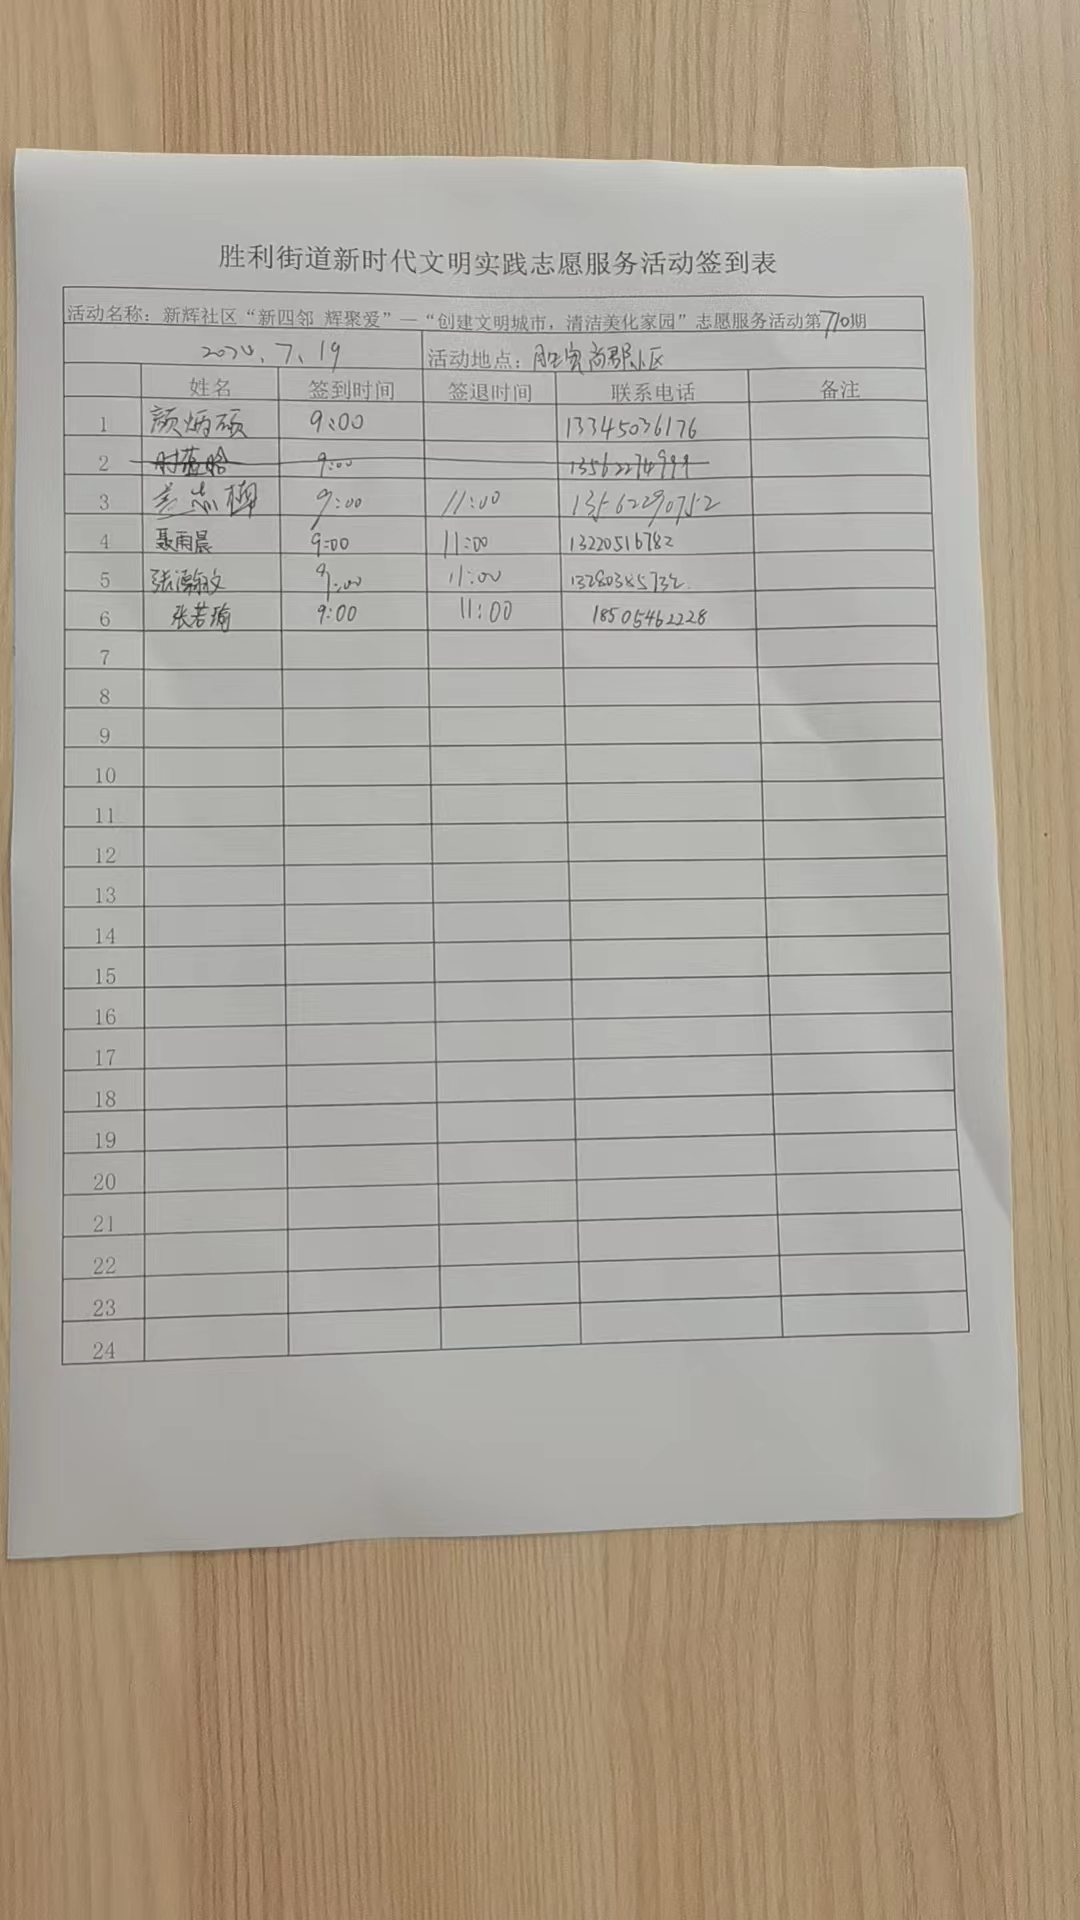 胜利街道新时代文明实践志愿服务活动签到表
活动名称：新辉社区“新四邻 辉聚爱”—“创建文明城市，清洁美化家园”志愿服务活动第710期
2024.7.19 活动地点：胜宾尚郡小区
姓名 签到时间 签退时间 联系电话 备注
1 颜炳硕 9:00 13345036176
2 9:00 13562274999
3 志 9:00 11:00 13562290752
4 聂雨晨 9:00 11:00 13220516782
5 张瀚文 9:00 11:00 13280385732
6 张若瑜 9:00 11:00 18505462228
7
8
9
10
11
12
13
14
15
16
17
18
19
20
21
22
23
24